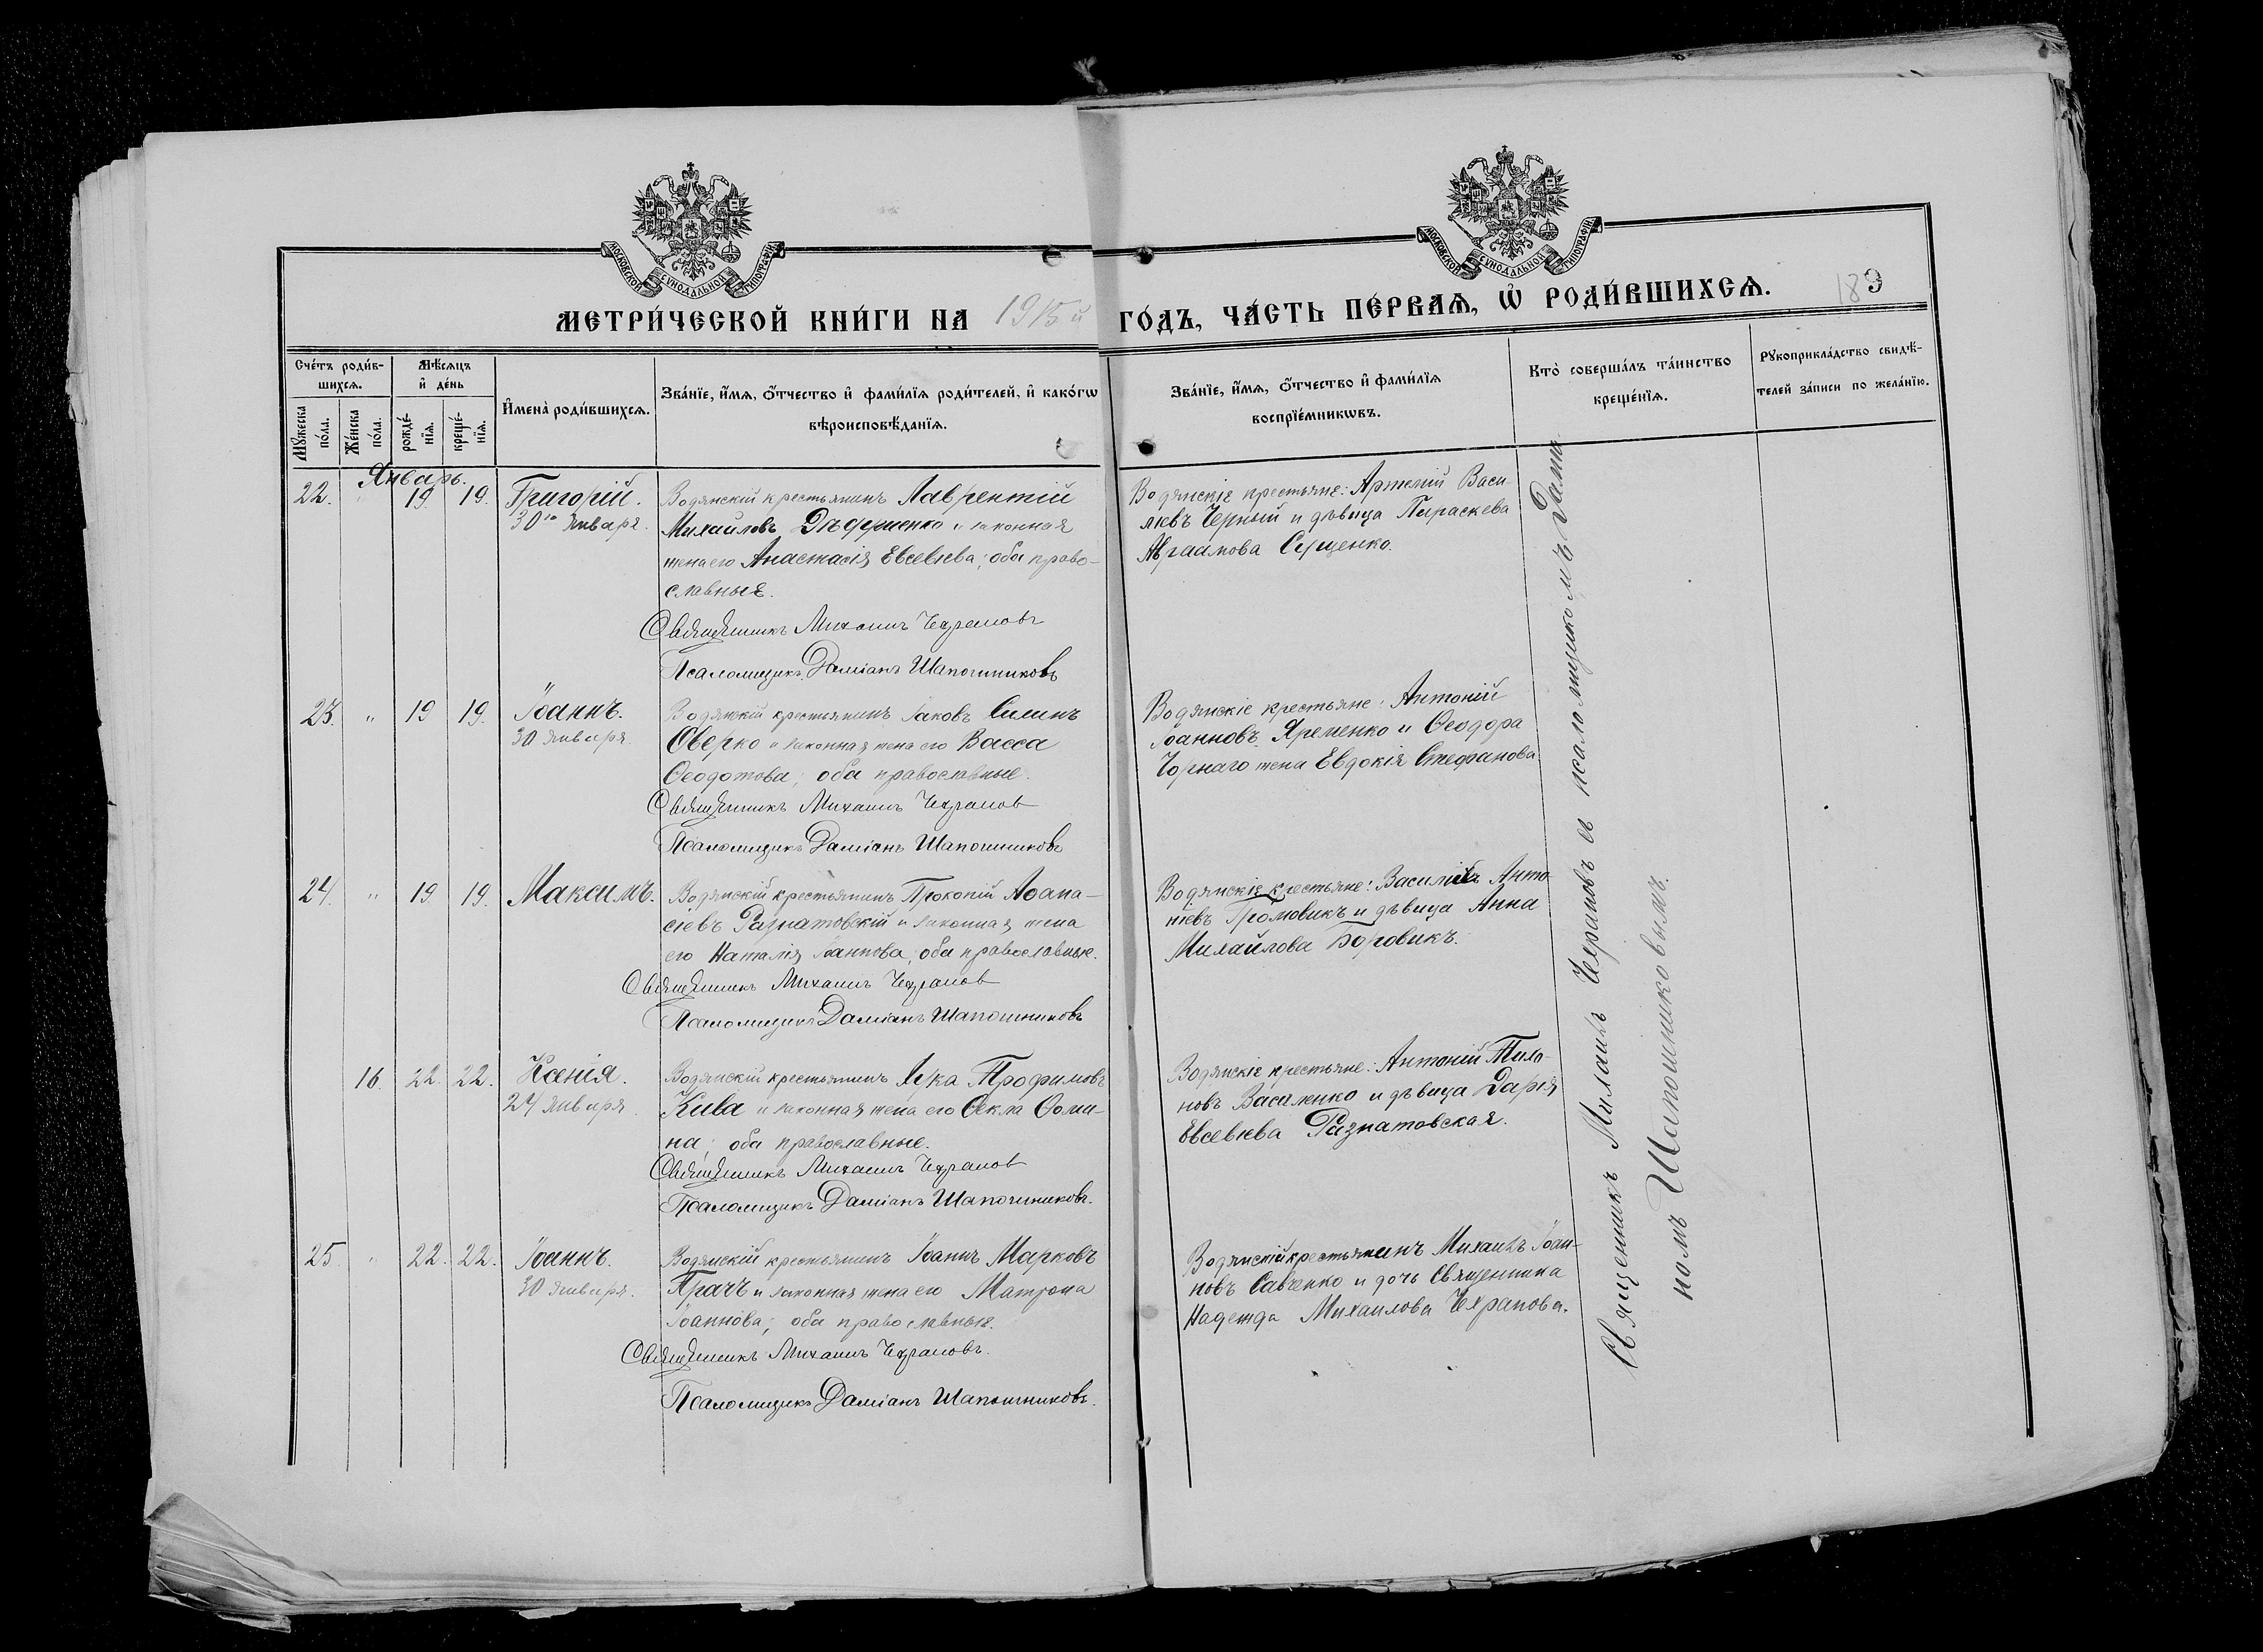 МОСКОВСКОЙ СѴНОДАЛЬНОЙ ТИПОГРАФІИ
МОСКОВСКОЙ СѴНОДАЛЬНОЙ ТИПОГРАФІИ
МЕТРИ́ЧЕСКОЙ КНИ́ГИ НА 1915й ГО́ДЪ, ЧА́СТЬ ПЕ́РВАѦ, Ѡ҆ РОДИ́ВШИХСѦ.
189
Сче́тъ роди́в-
шихсѧ.
Мꙋ́жеска
по́ла.
Же́нска
по́ла.
Мѣ́сѧцъ
и҆ де́нь
рожде́-
нїѧ.
креще́-
нїѧ.
И҆мена̀ роди́вшихсѧ.
Зва́нїе, и҆́мѧ, ѻ҆́тчество и҆ фами́лїѧ роди́телей, и҆ како́гѡ
вѣроисповѣ́данїѧ.
Зва́нїе, и҆́мѧ, ѻ҆́тчество и҆ фами́лїѧ
воспрїе́мникѡвъ.
Кто̀ соверша́лъ та́инство
креще́нїѧ.
Рꙋкоприкла́дство свидѣ́-
телей за́писи по жела́нїю.
Январь.
22. " 19. 19. Григорій.
30го января.
Водянскій крестьянинъ Лаврентій
Михайловъ и законная
жена его Анастасія Евсевіева; оба право-
славные.
Священникъ Михаилъ Чехрановъ
Псаломщикъ Даміанъ Шапошниковъ
Водянскіе крестьяне: Артемій Васи-
ліевъ Черный и дѣвица Параскева
Авраамова Сущенко.
23. " 19 19. Іоаннъ.
30 января.
Водянскій крестьянинъ Іаковъ Силинъ
Сверко и законная жена его Васса
Ѳеодотова; оба православные.
Священникъ Михаилъ Чехрановъ
Псаломщикъ Даміанъ Шапошниковъ
Водянскіе крестьяне: Антоній
Іоанновъ Яременко и Ѳеодора
Чорнаго жена Евдокія Стефанова.
24. " 19 19. Максимъ.
Водянскій крестьянинъ Прокопій Аѳана-
сіевъ Разнатовскій и законная жена
его Наталія Іоаннова; оба православные.
Священникъ Михаилъ Чехрановъ
Псаломщикъ Даміанъ Шапошниковъ
Водянскіе крестьяне: Василій Анто-
ніевъ Громовикъ и дѣвица Анна
Михайлова Боровикъ.
16. 22. 22. Ксенія.
24 января.
Водянскій крестьянинъ Лука Трофимовъ
Кива и законная жена его Ѳекла Ѳоми-
на; оба православные.
Священникъ Михаилъ Чехрановъ
Псаломщикъ Даміанъ Шапошниковъ.
Водянскіе крестьяне: Антоній
новъ Василенко и дѣвица Дарія
Евсевіева Разнатовская.
25 " 22. 22. Іоаннъ.
30 января.
Водянскій крестьянинъ Іоаннъ Марковъ
Прачъ и законная жена его Матрона
Іоаннова; оба православные.
Священникъ Михаилъ Чехрановъ.
Псаломщикъ Даміанъ Шапошниковъ.
Водянскій крестьянинъ Михаилъ Іоан-
новъ Савченко и дочь священника
Надежда Михаилова Чехранова.
Священникъ Михаилъ Чехрановъ съ псаломщикомъ Даміа-
номъ Шапошниковымъ.